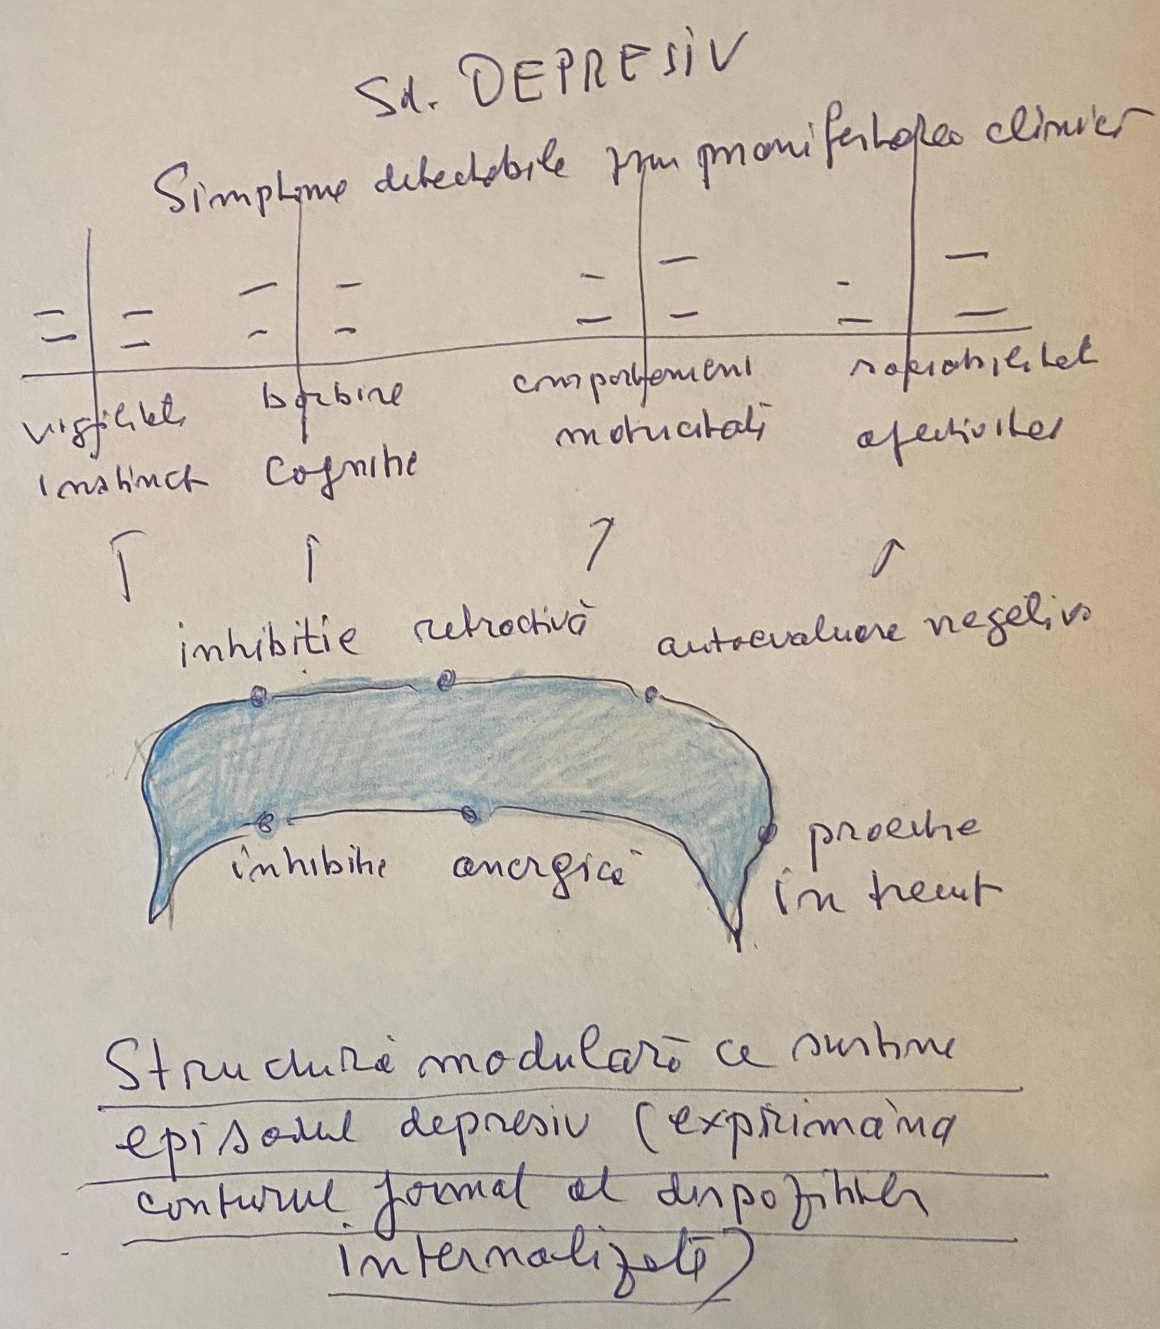 Sd. DEPRESIV
Simptome detectabile prin manifestarea clinică
vigilitate
instinct
cogniție
comportament
motricitate
sociabilitate
afectivitate
inhibitie retractivă autoevaluare negativă
inhibitie anergică
proecție
în trecut
Structură modulară ce susține
episodul depresiv (exprimând
conturul formal al dispoziției
internalizate)